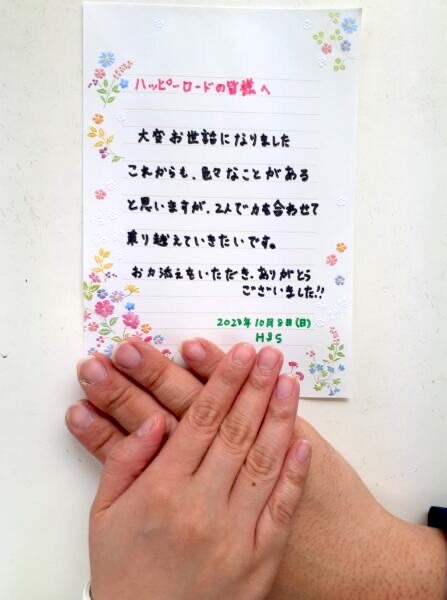 ハッピーロードの皆様へ
大変お世話になりました
これからも、色々なことがある
と思いますが、2人で力を合わせて
乗り越えていきたいです。
お力添えもいただき、ありがとう
ございました!!
2023年10月8日(日)
H&S